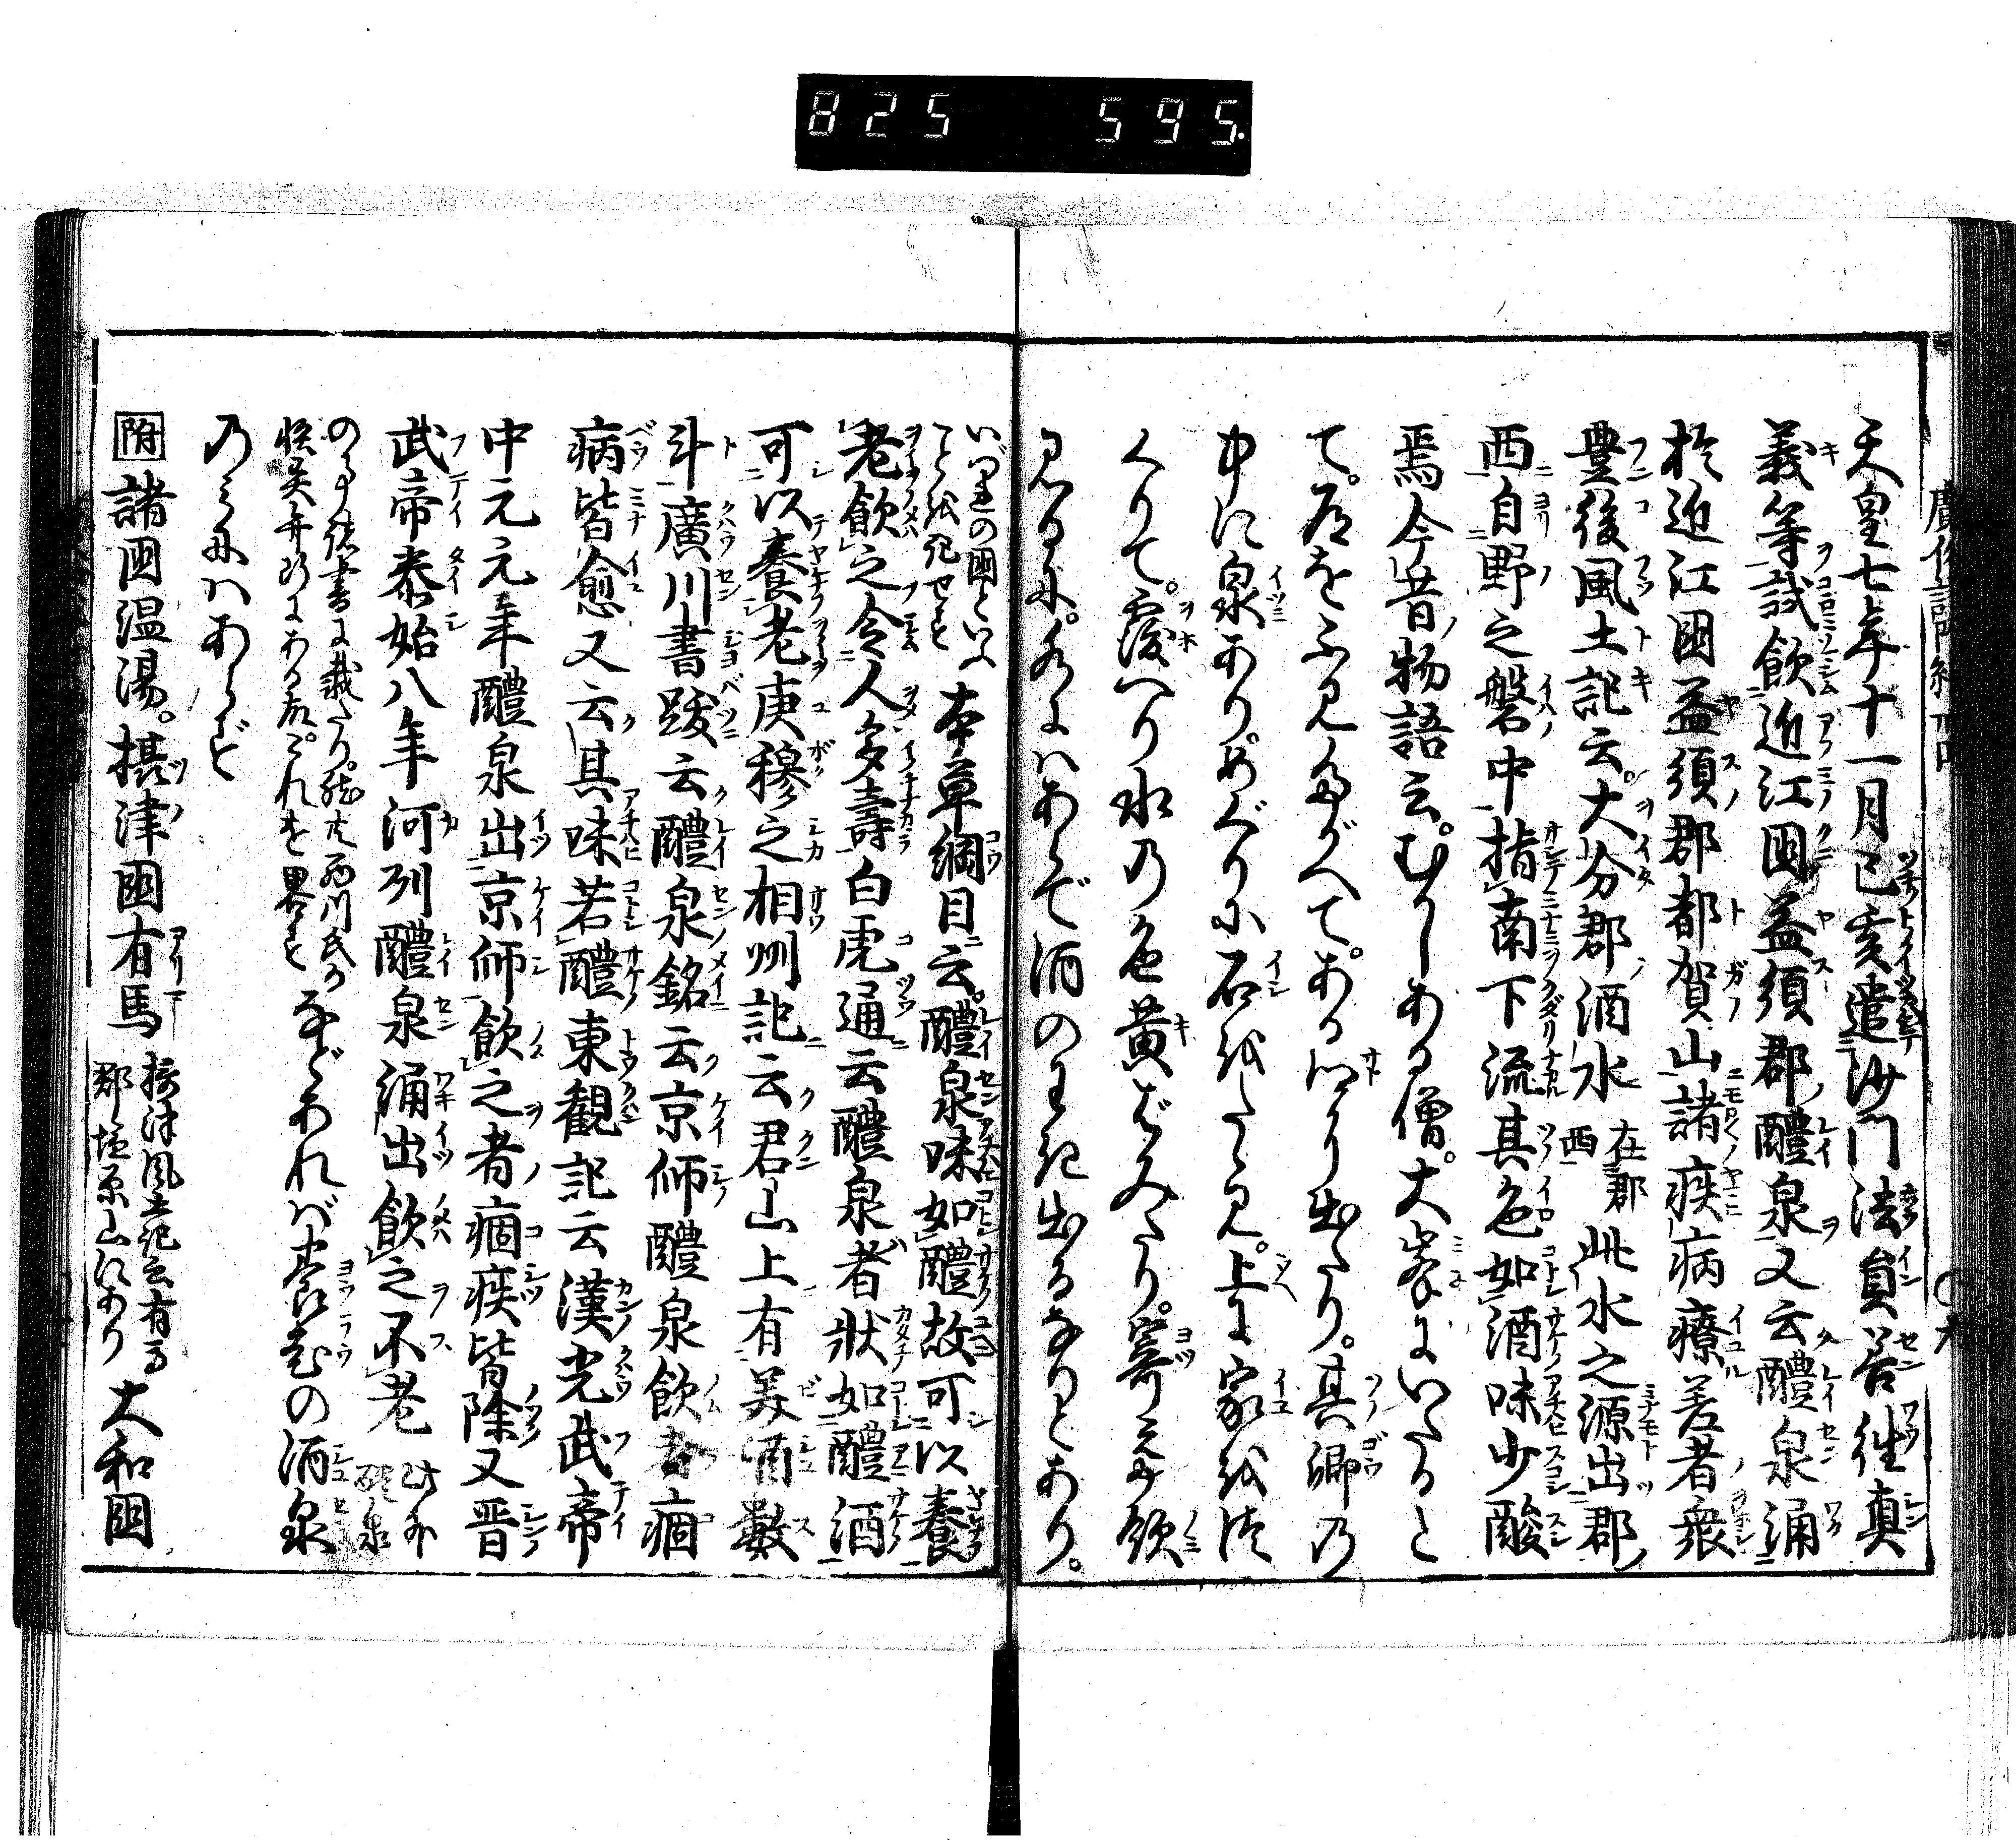 825 595.
天皇七年十一月己亥遣沙門法員善往真
義等試飲近江国益須郡醴泉又云醴泉涌
於近江国益須郡都賀山諸疾病療差者衆
豊後風土記云。大分郡酒水 在郡西 此水之源出郡
西自野之磐中指南下流其色如酒味少酸
焉今昔物語云。むかしある僧。大峯にいたると
て。道をふみたがへて。ある里に出たり。其郷の
中に泉あり。めぐりに石をたゝみ。上に家を作
くりて。覆へり水の色黄ばみたり。寄て飲
見るに。水にはあらで酒のわき出るなりとあり。
いづれの国といふことを記せず 本草綱目云。醴泉味如醴故可以養
老飲之令人多壽白虎通云醴泉者状如醴酒
可以養老庾穆之相州記云君山上有美酒数
斗廣川書跋云醴泉銘云京師醴泉飲者痼
病皆愈又云其味若醴東観記云漢光武帝
中元元年醴泉出京師飲之者痼疾皆除又晋
武帝泰始八年河列醴泉涌出飲之不老 此外醴泉
の事諸書に載たり。などあれば養老の酒泉
のみにはあらず
附 諸国温湯。摂津国有馬 摂津風土記云有馬郡塩原山にあり 大和国